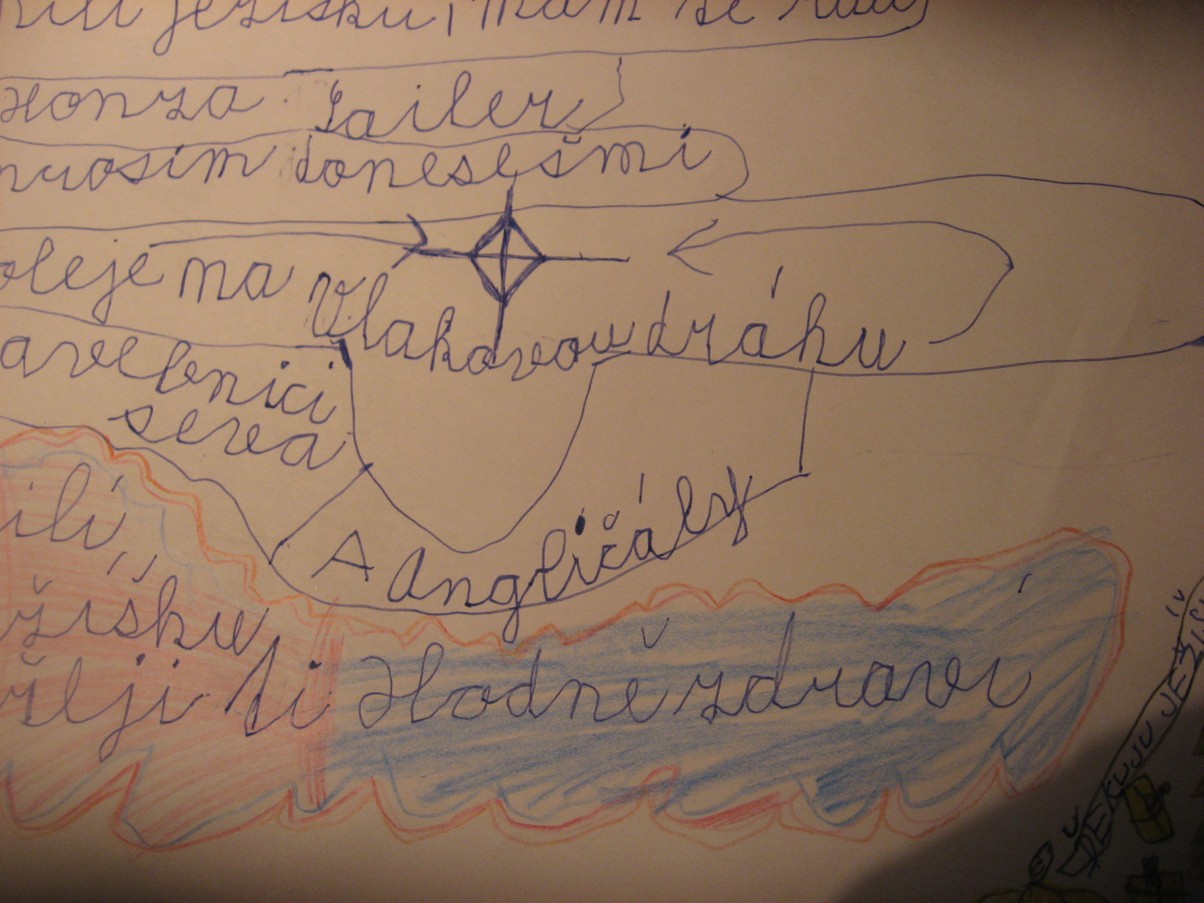 milí ježíšku, mám tě rád
Honza Sailer
prosím doneseš mi
oleje na Vlakovou dráhu
avebnici
seva
A Angličály
ilí,
žíšku
řeji ti Hodně zdraví
DĚKUJU JEŽÍŠ